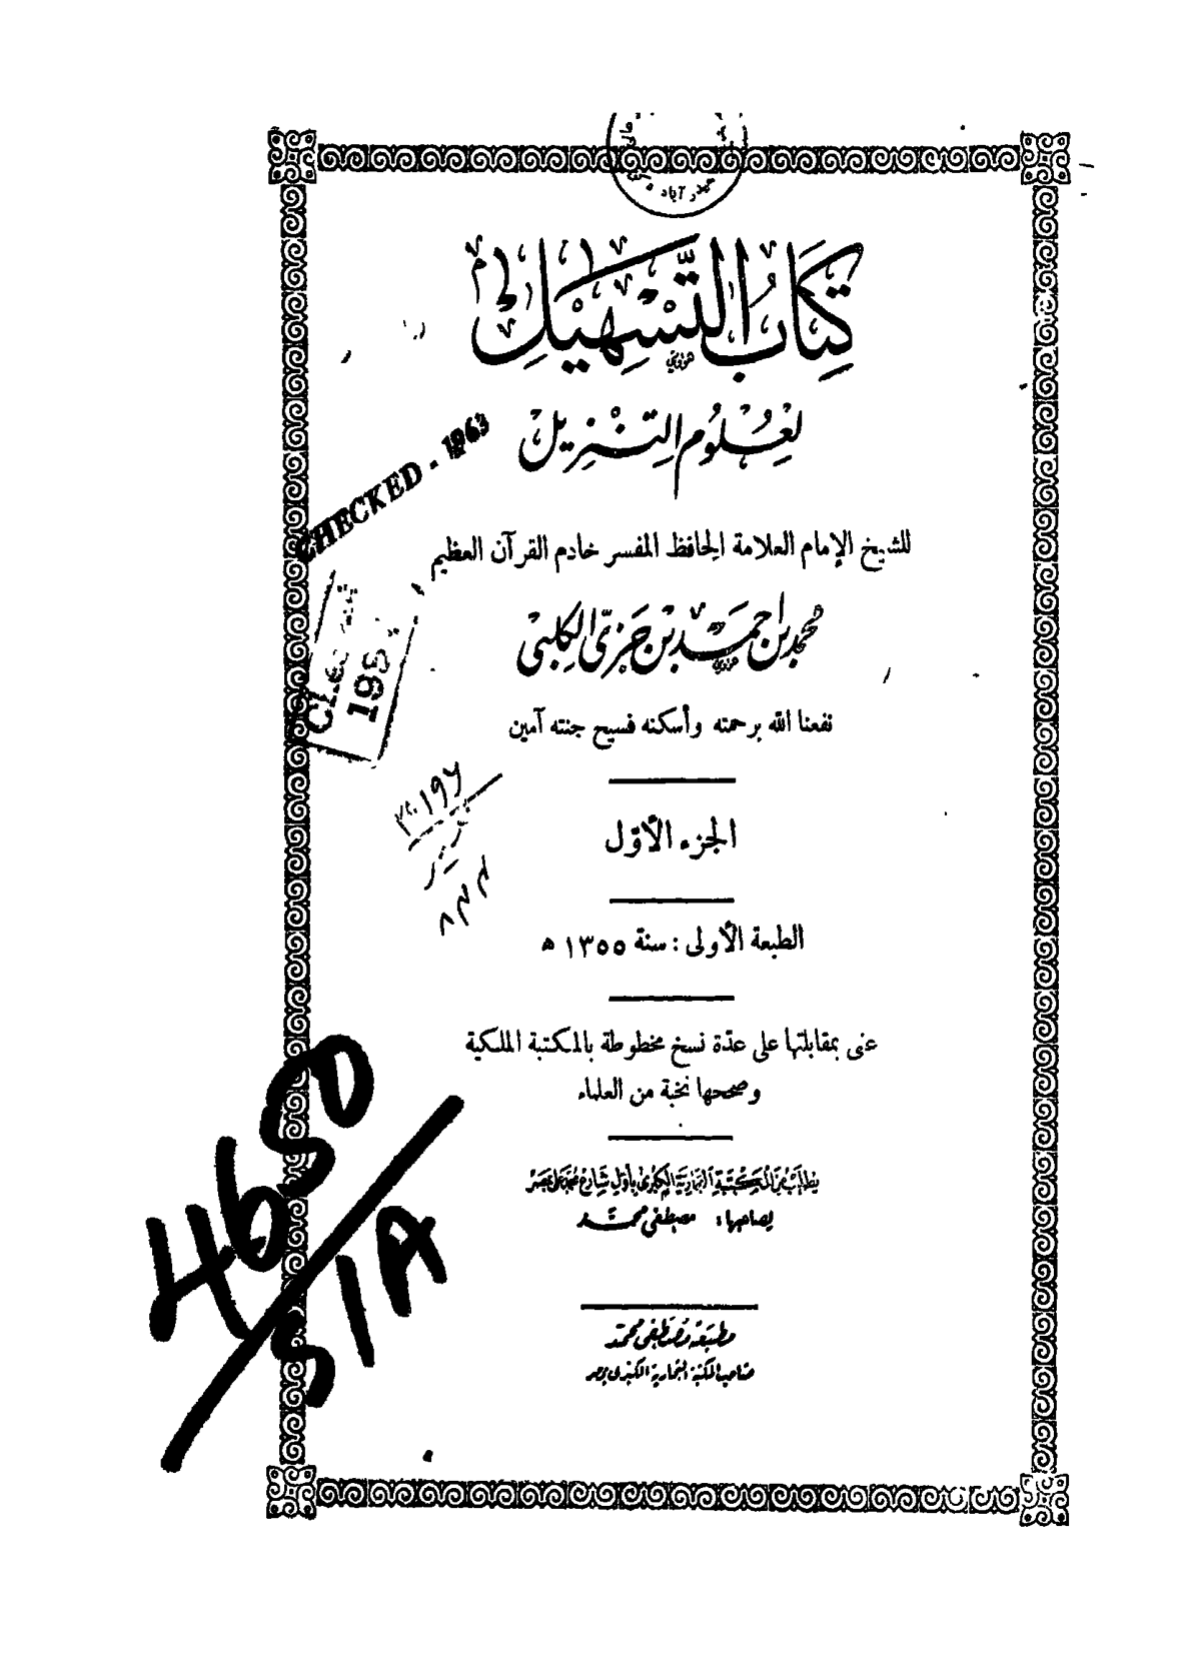 حيدر آباد
كتاب التسهيل
لعلوم التنزيل
CHECKED - 1963
للشيخ الإمام العلامة الحافظ المفسر خادم القرآن العظيم
محمد بن احمد بن جزى الكلبى
198
نفعنا الله برحمته وأسكنه فسيح جنته آمين
الجزء الأول
الطبعة الأولى : سنة ١٣٥٥ ه
عنى بمقابلتها على عدّة نسخ مخطوطة بالمكتبة الملكية
وصححها نخبة من العلماء
4650
51A
يطلب من المكتبة التجارية الكبرى بأول شارع محمد على بمصر
لصاحبها : مصطفى محمد
مطبعة مصطفى محمد
صاحب المكتبة التجارية الكبرى بمصر